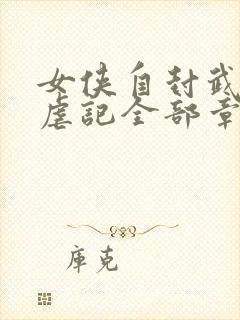 女侠自封武
虐記全部章
庫克